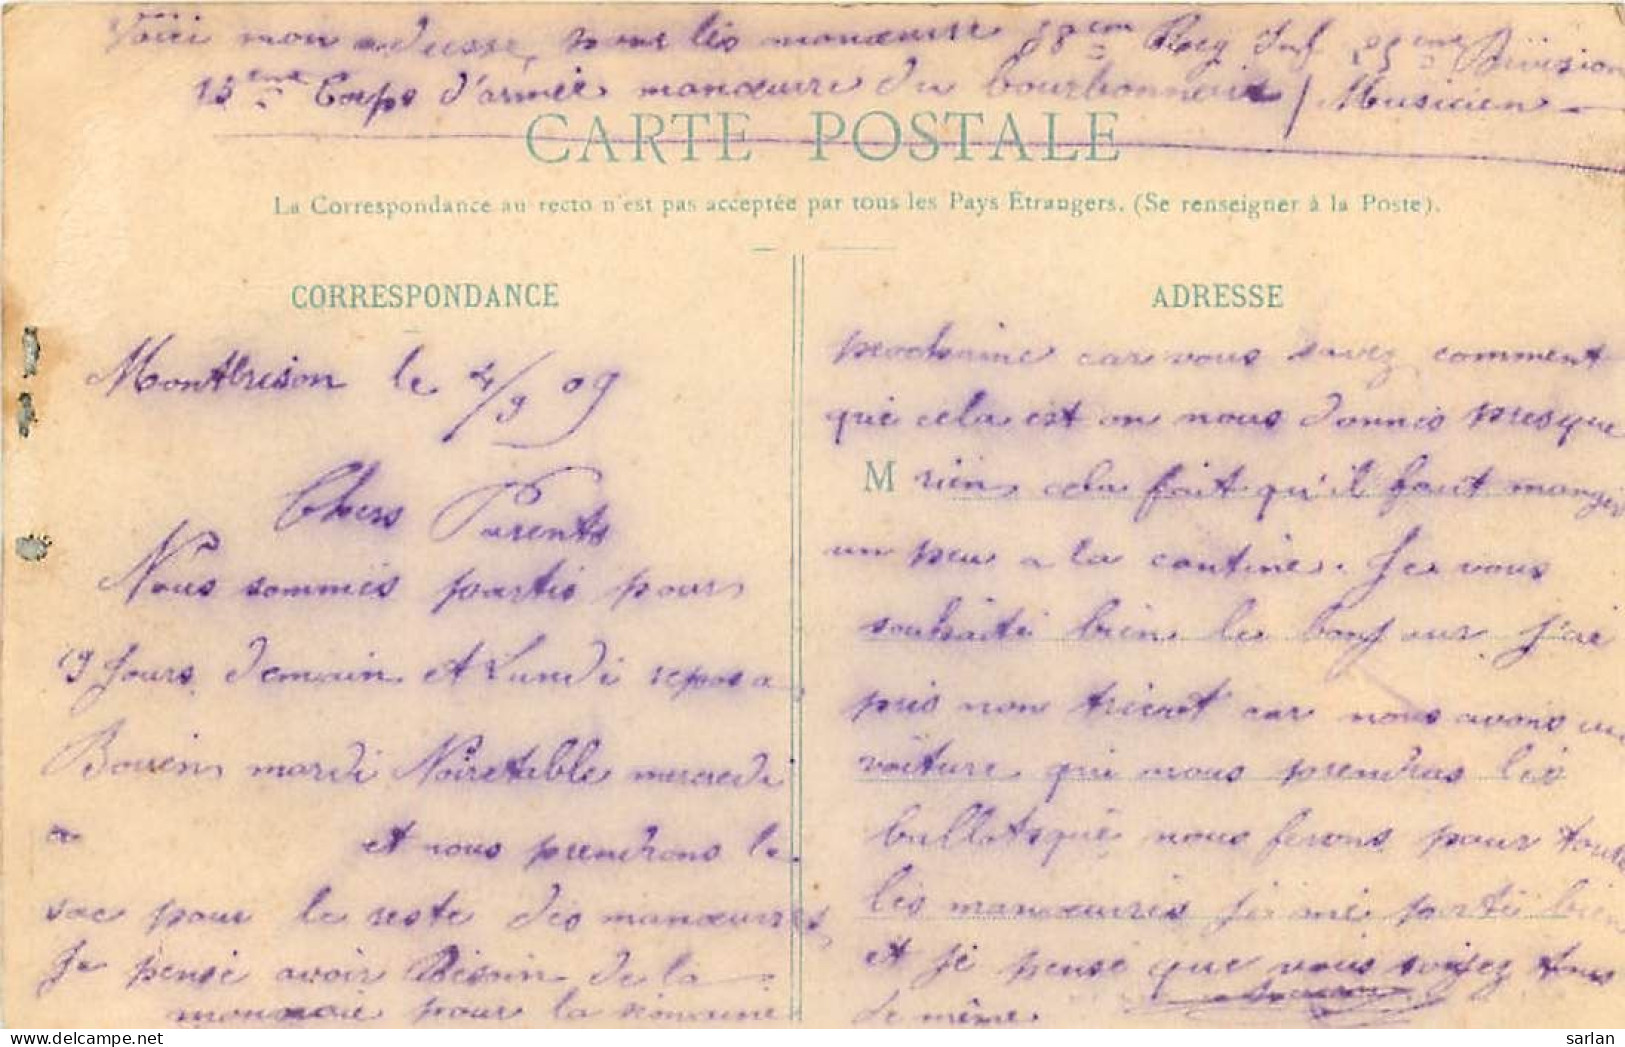 Voici mon adresse, pour les manœuvre Reg Inf 25eme Division
13eme Corps d'armée manœuvre du bourbonnais / Musicien
CARTE POSTALE
La Correspondance au recto n'est pas acceptée par tous les Pays Étrangers. (Se renseigner à la Poste).
CORRESPONDANCE
Montbrison le 4/9 09
Chers Parents
Nous sommes partis pour
19 Jours demain et Lundi repos a
Bouen mardi Noiretable mercredi
a et nous prendrons le
sac pour le reste des manœuvres,
Je pense avoir Besoin de la
monnaie pour la semaine
ADRESSE
prochaine car vous savez comment
que cela est on nous donnes presque
M rien cela fait qu'il faut manger
un peu a la cantine. Je vous
souhaite bien le bonjour j'ai
pris mon tricot car nous avons un
voiture qui nous prendras les
ballots que nous ferons pour toute
les manœuvres je me porte bien
et je pense que vous soyez tous
de même.
sarlan